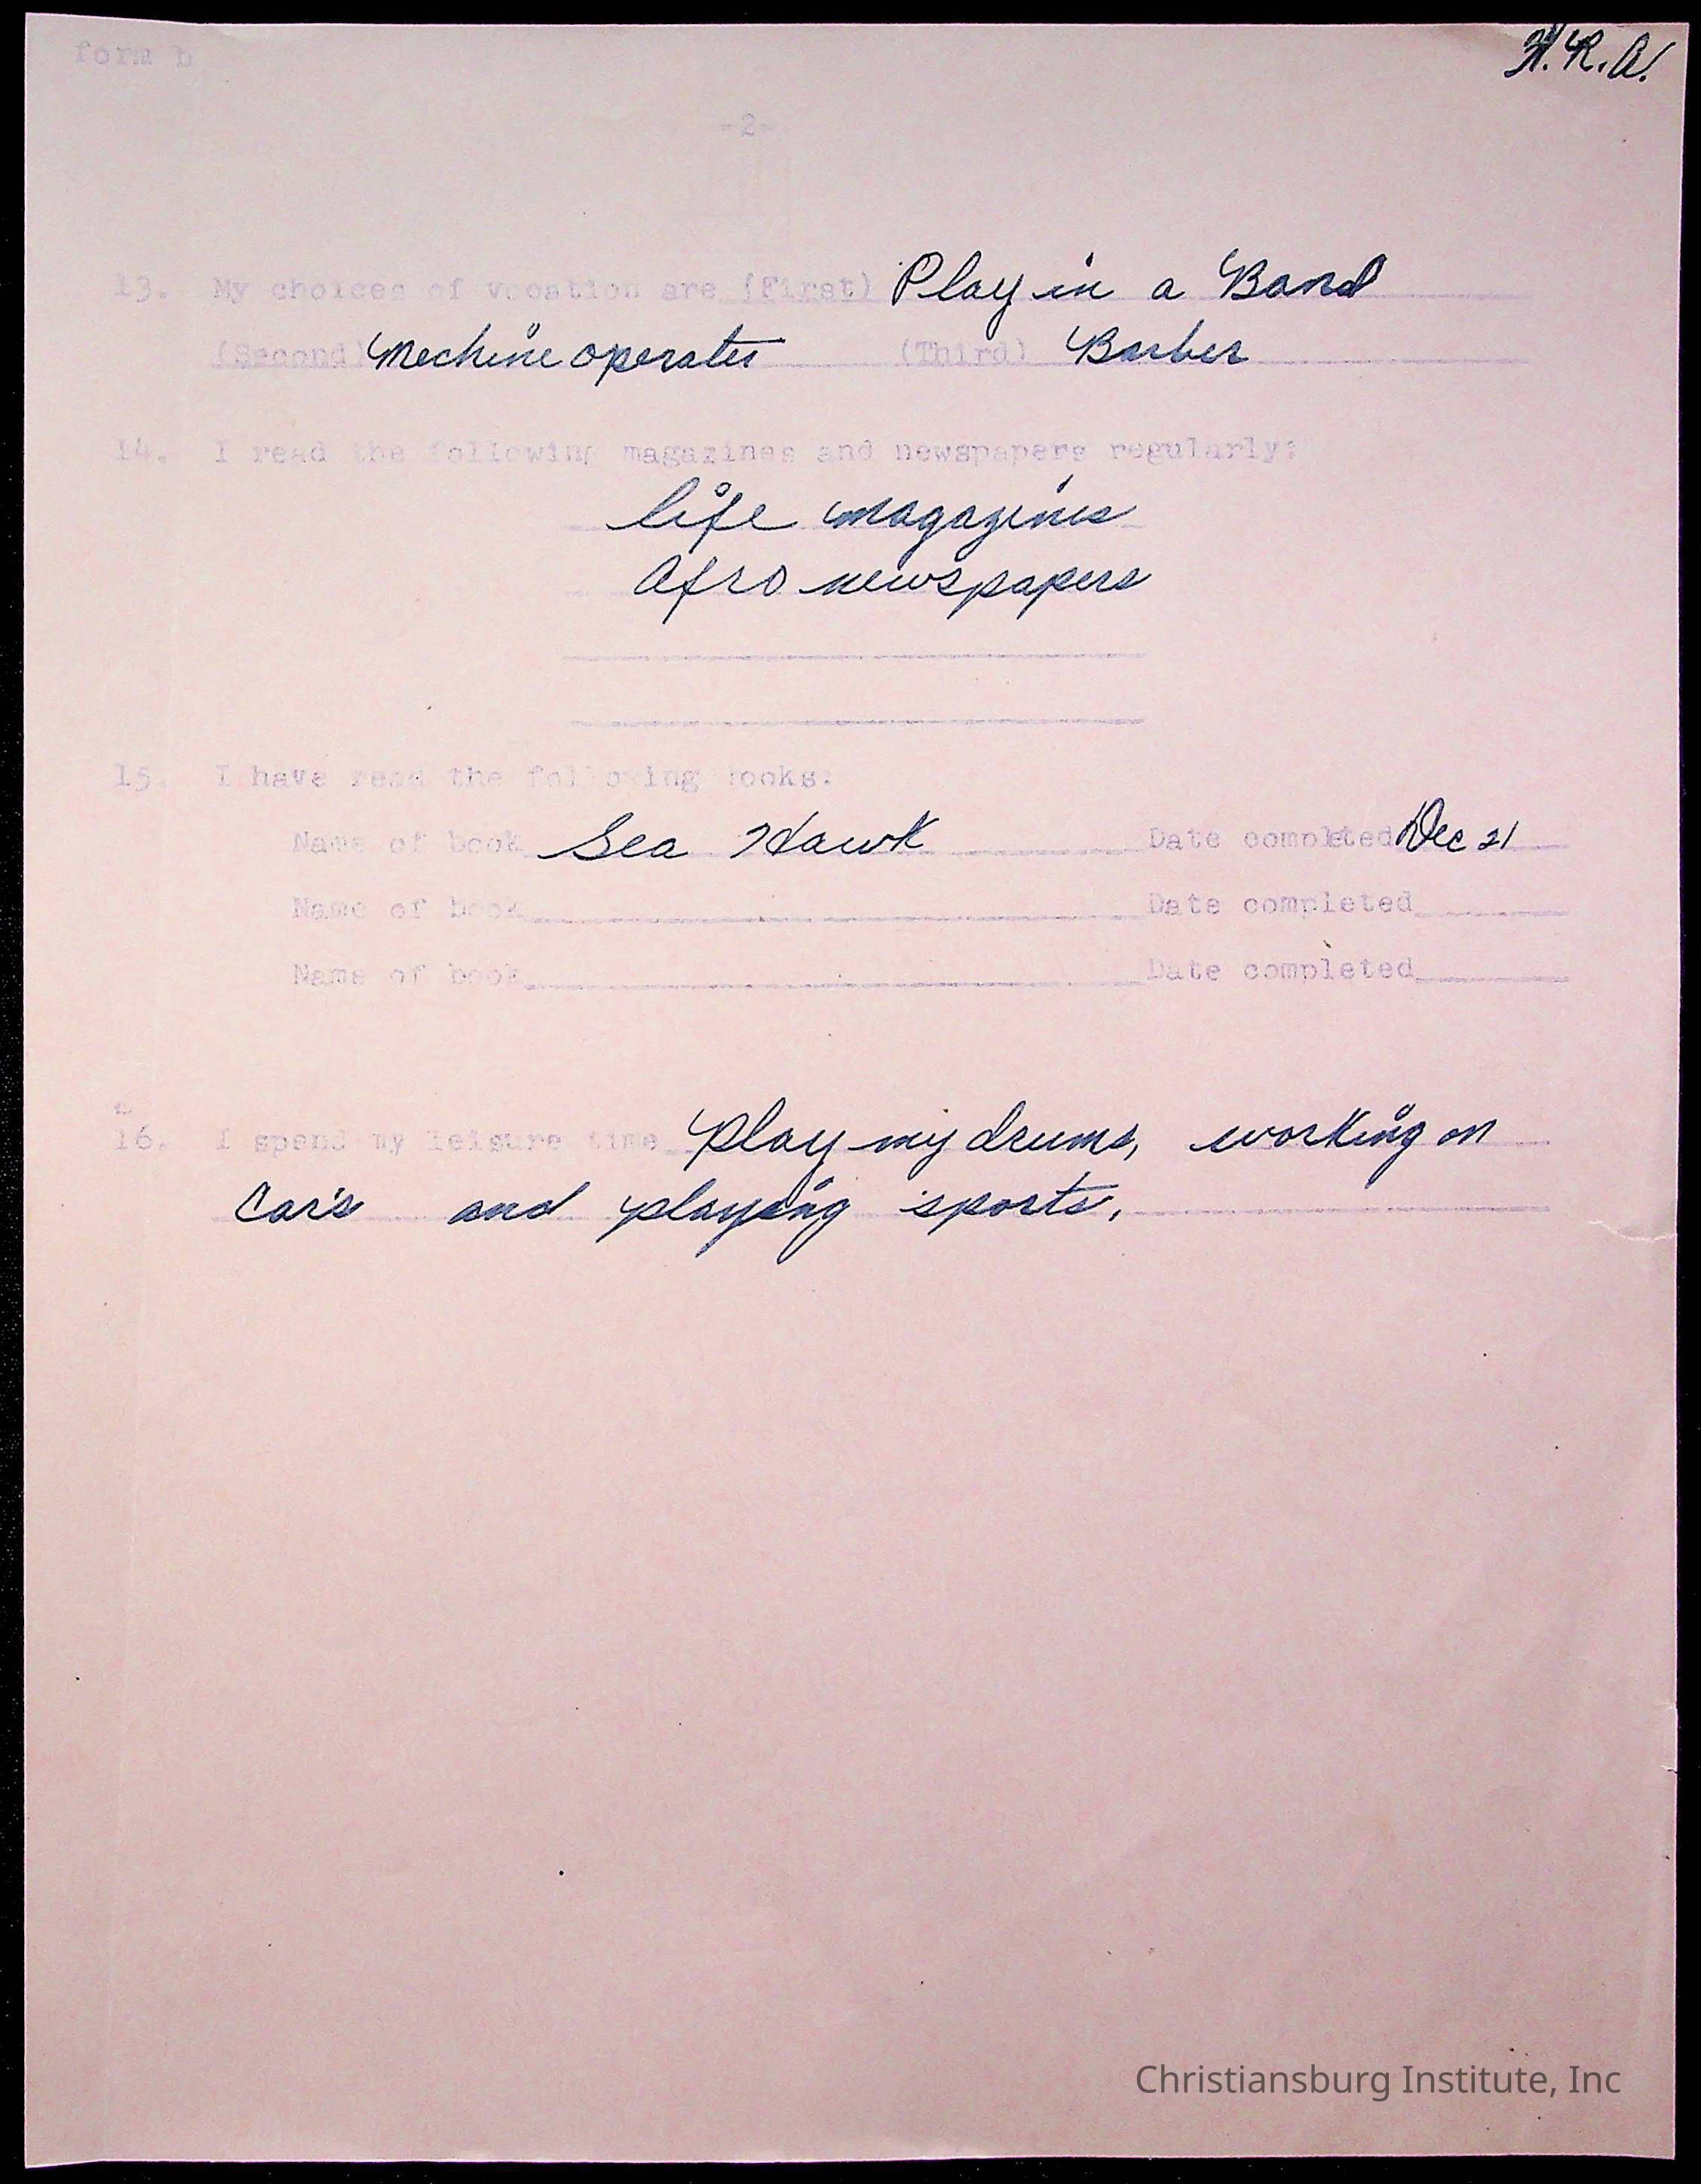 form b
H.R.A.
-2-
13. My choices of vocation are (First) Play in a Band
(Second) Mechine operater (Third) Barber
14. I read the following magazines and newspapers regularly:
life magazines
Afro newspapers
15. I have read the following books:
Name of book Sea Hawk Date completed Dec 21
Name of book Date completed
Name of book Date completed
16. I spend my leisure time Play my drums, working on
Car's and playing sports.
Christiansburg Institute, Inc